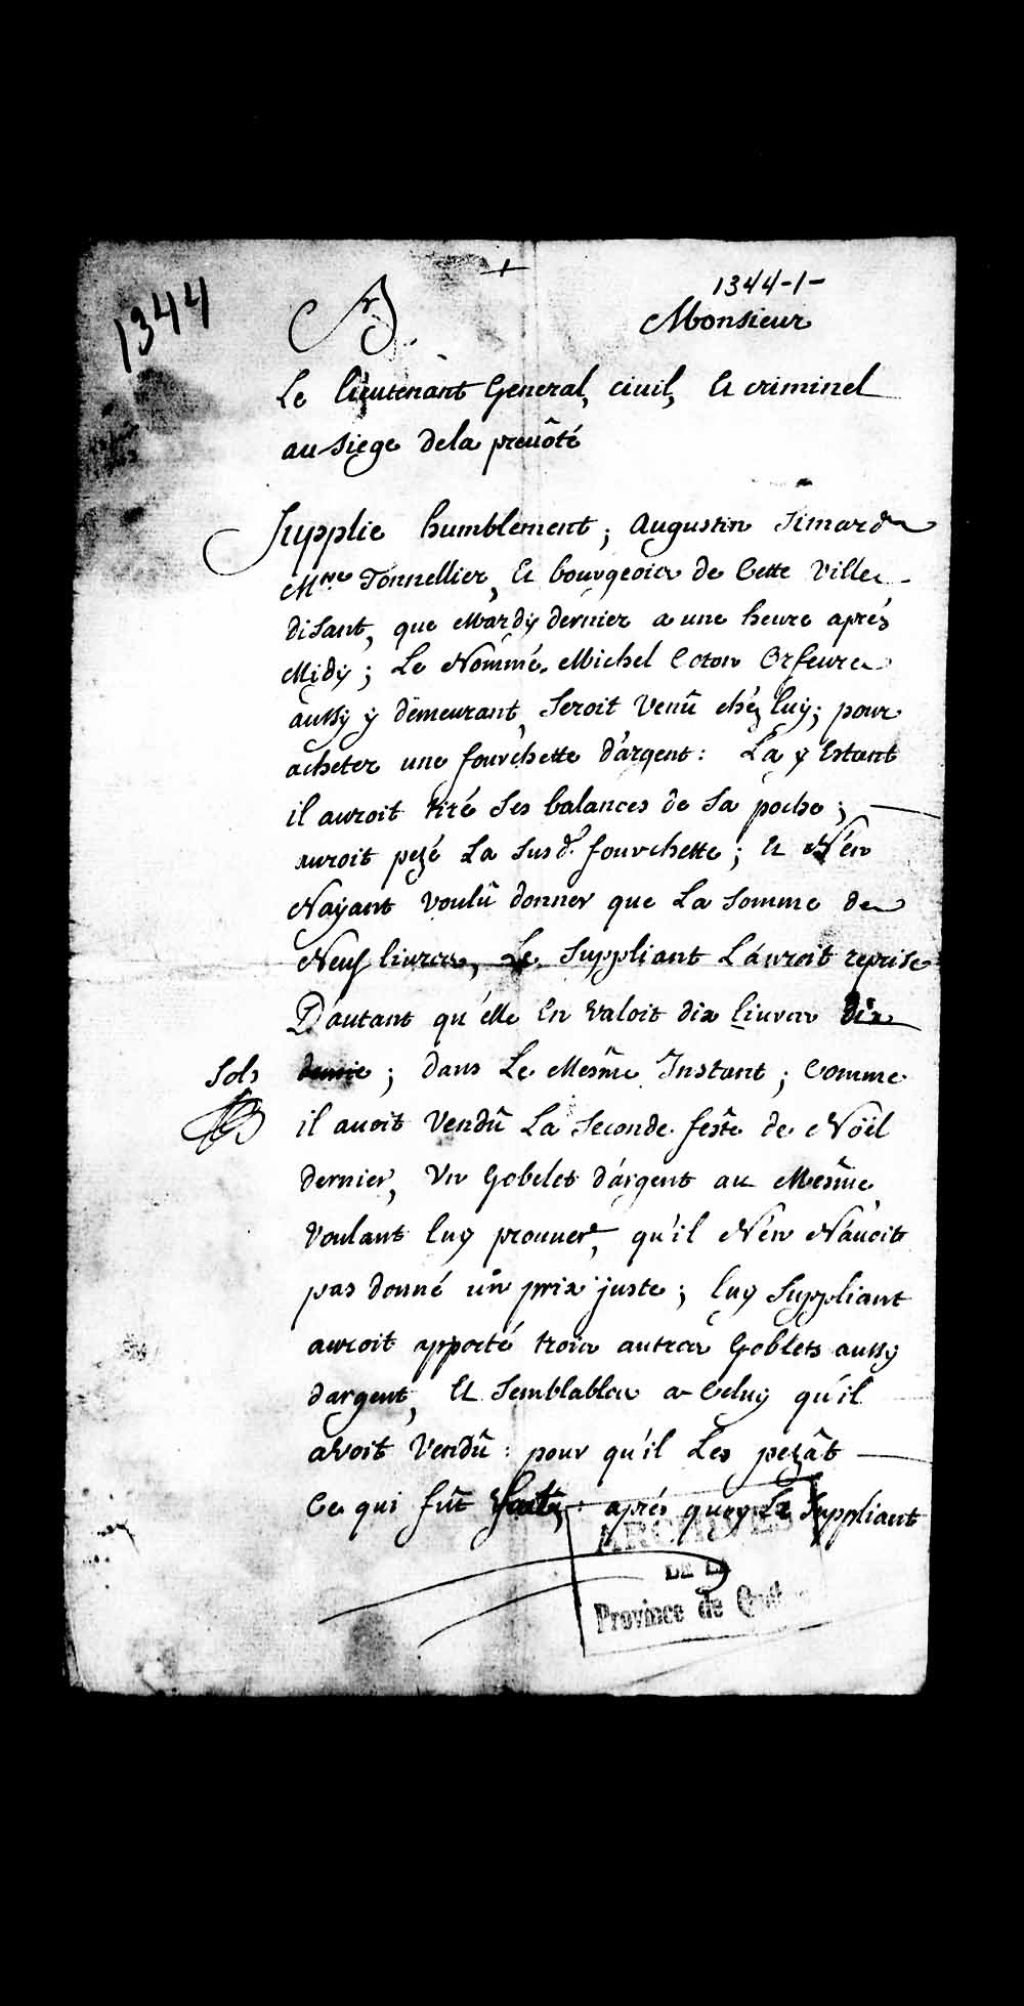 1344
1344-1-
A
Monsieur
Le lieutenant General, civil, Et criminel
au siege dela prevôté
Supplie humblement; Augustin Simard
Mtre Tonnellier, Et bourgeois de Cette Ville
disant, que Mardy dernier a une heure aprés
Midy; Le Nommé Michel Coton Orfeure
aussy y demeurant, Seroit Venû chéz luy; pour
acheter une fourchette d'argent: La y Estant
il auroit tiré Ses balances de Sa poche;
auroit pezé La Susd. fourchette; Et N'en
Nayant voulû donner que La Somme de
Neuf livres, Le Suppliant L'auroit reprise
D'autant qu'elle En Valoit dix livres dix
Sols demie; dans Le Mesme Instant; Comme
il avoit Vendû La Seconde feste de Nöel
dernier, Un Gobelet d'argent au Mesme,
Voulant luy prouuer, qu'il N'en N'auoit
pas donné un prix juste; luy Suppliant
auroit apporté trois autres Goblets aussy
dargent, Et Semblables a Celuy qu'il
avoit Vendû: pour qu'il Les pezât
Ce qui fût fait; aprés quoy Le Suppliant
ARCHIVES
DE LA
Province de Québec